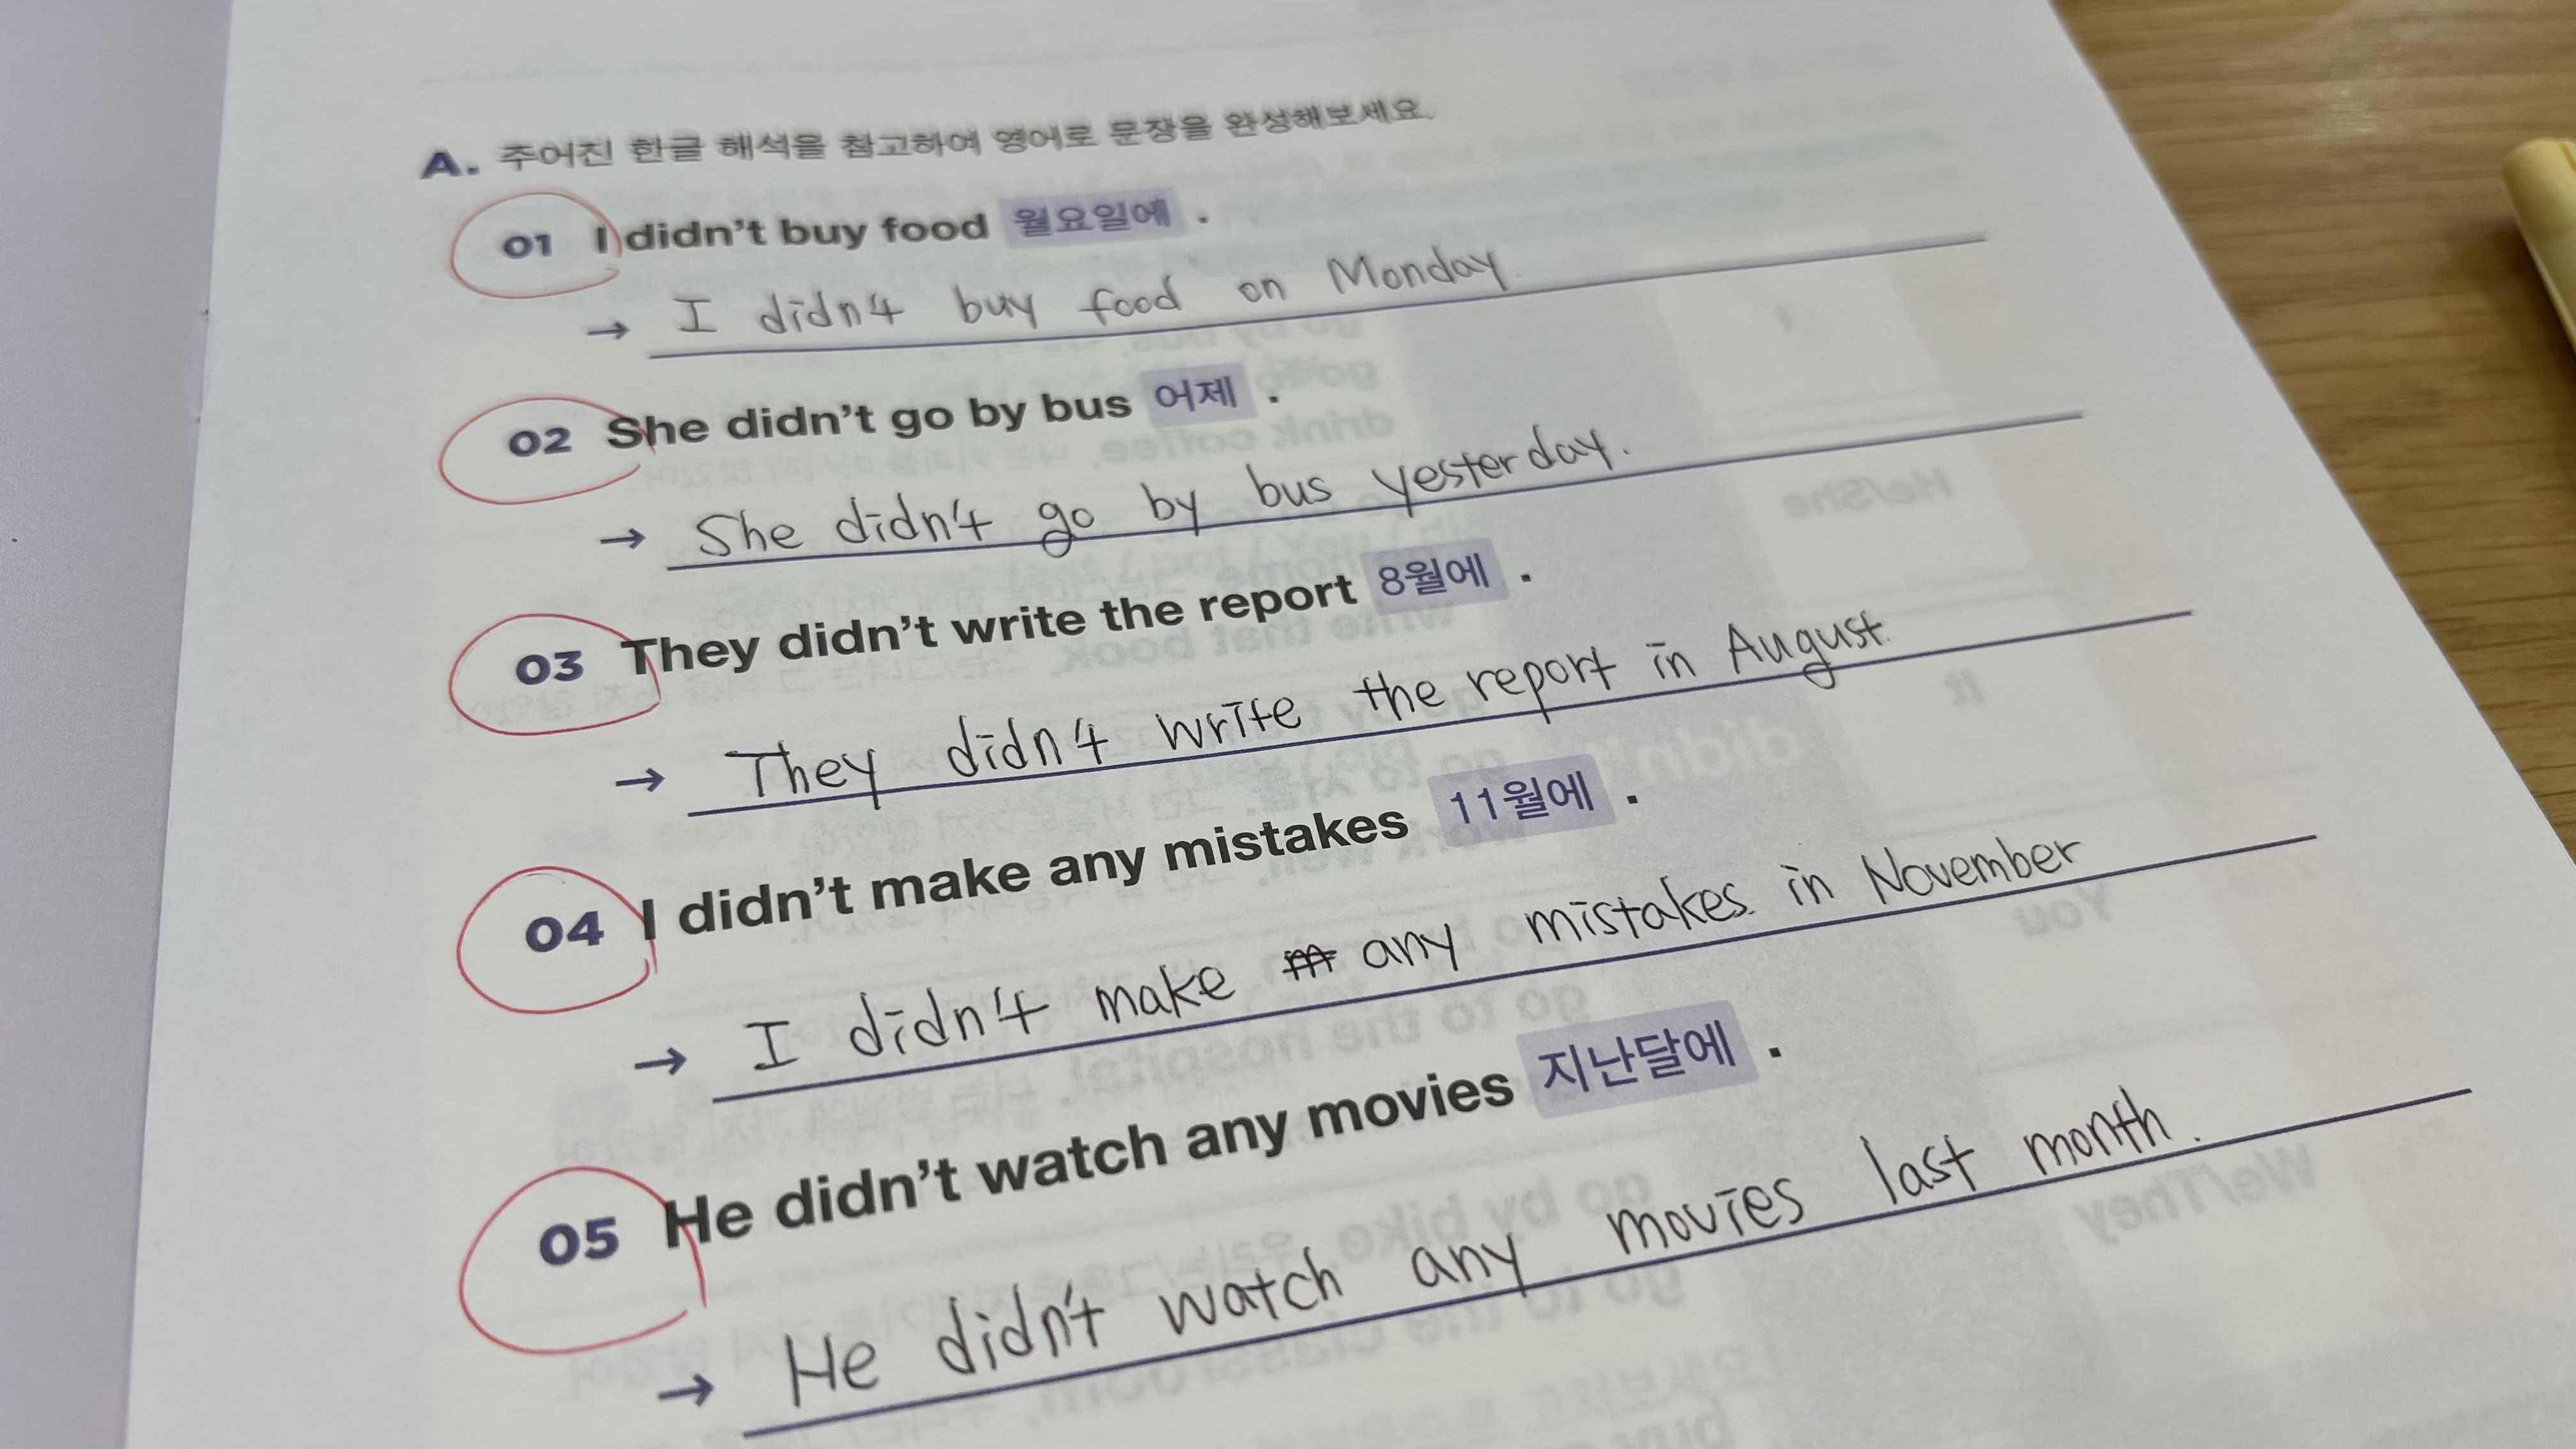 A. 주어진 한글 해석을 참고하여 영어로 문장을 완성해보세요.
01 I didn't buy food 월요일에 .
→ I didn't buy food on Monday.
02 She didn't go by bus 어제 .
→ She didn't go by bus yesterday.
03 They didn't write the report 8월에 .
→ They didn't write the report in August.
04 I didn't make any mistakes 11월에 .
→ I didn't make any mistakes. in November
05 He didn't watch any movies 지난달에 .
→ He didn't watch any movies last month.